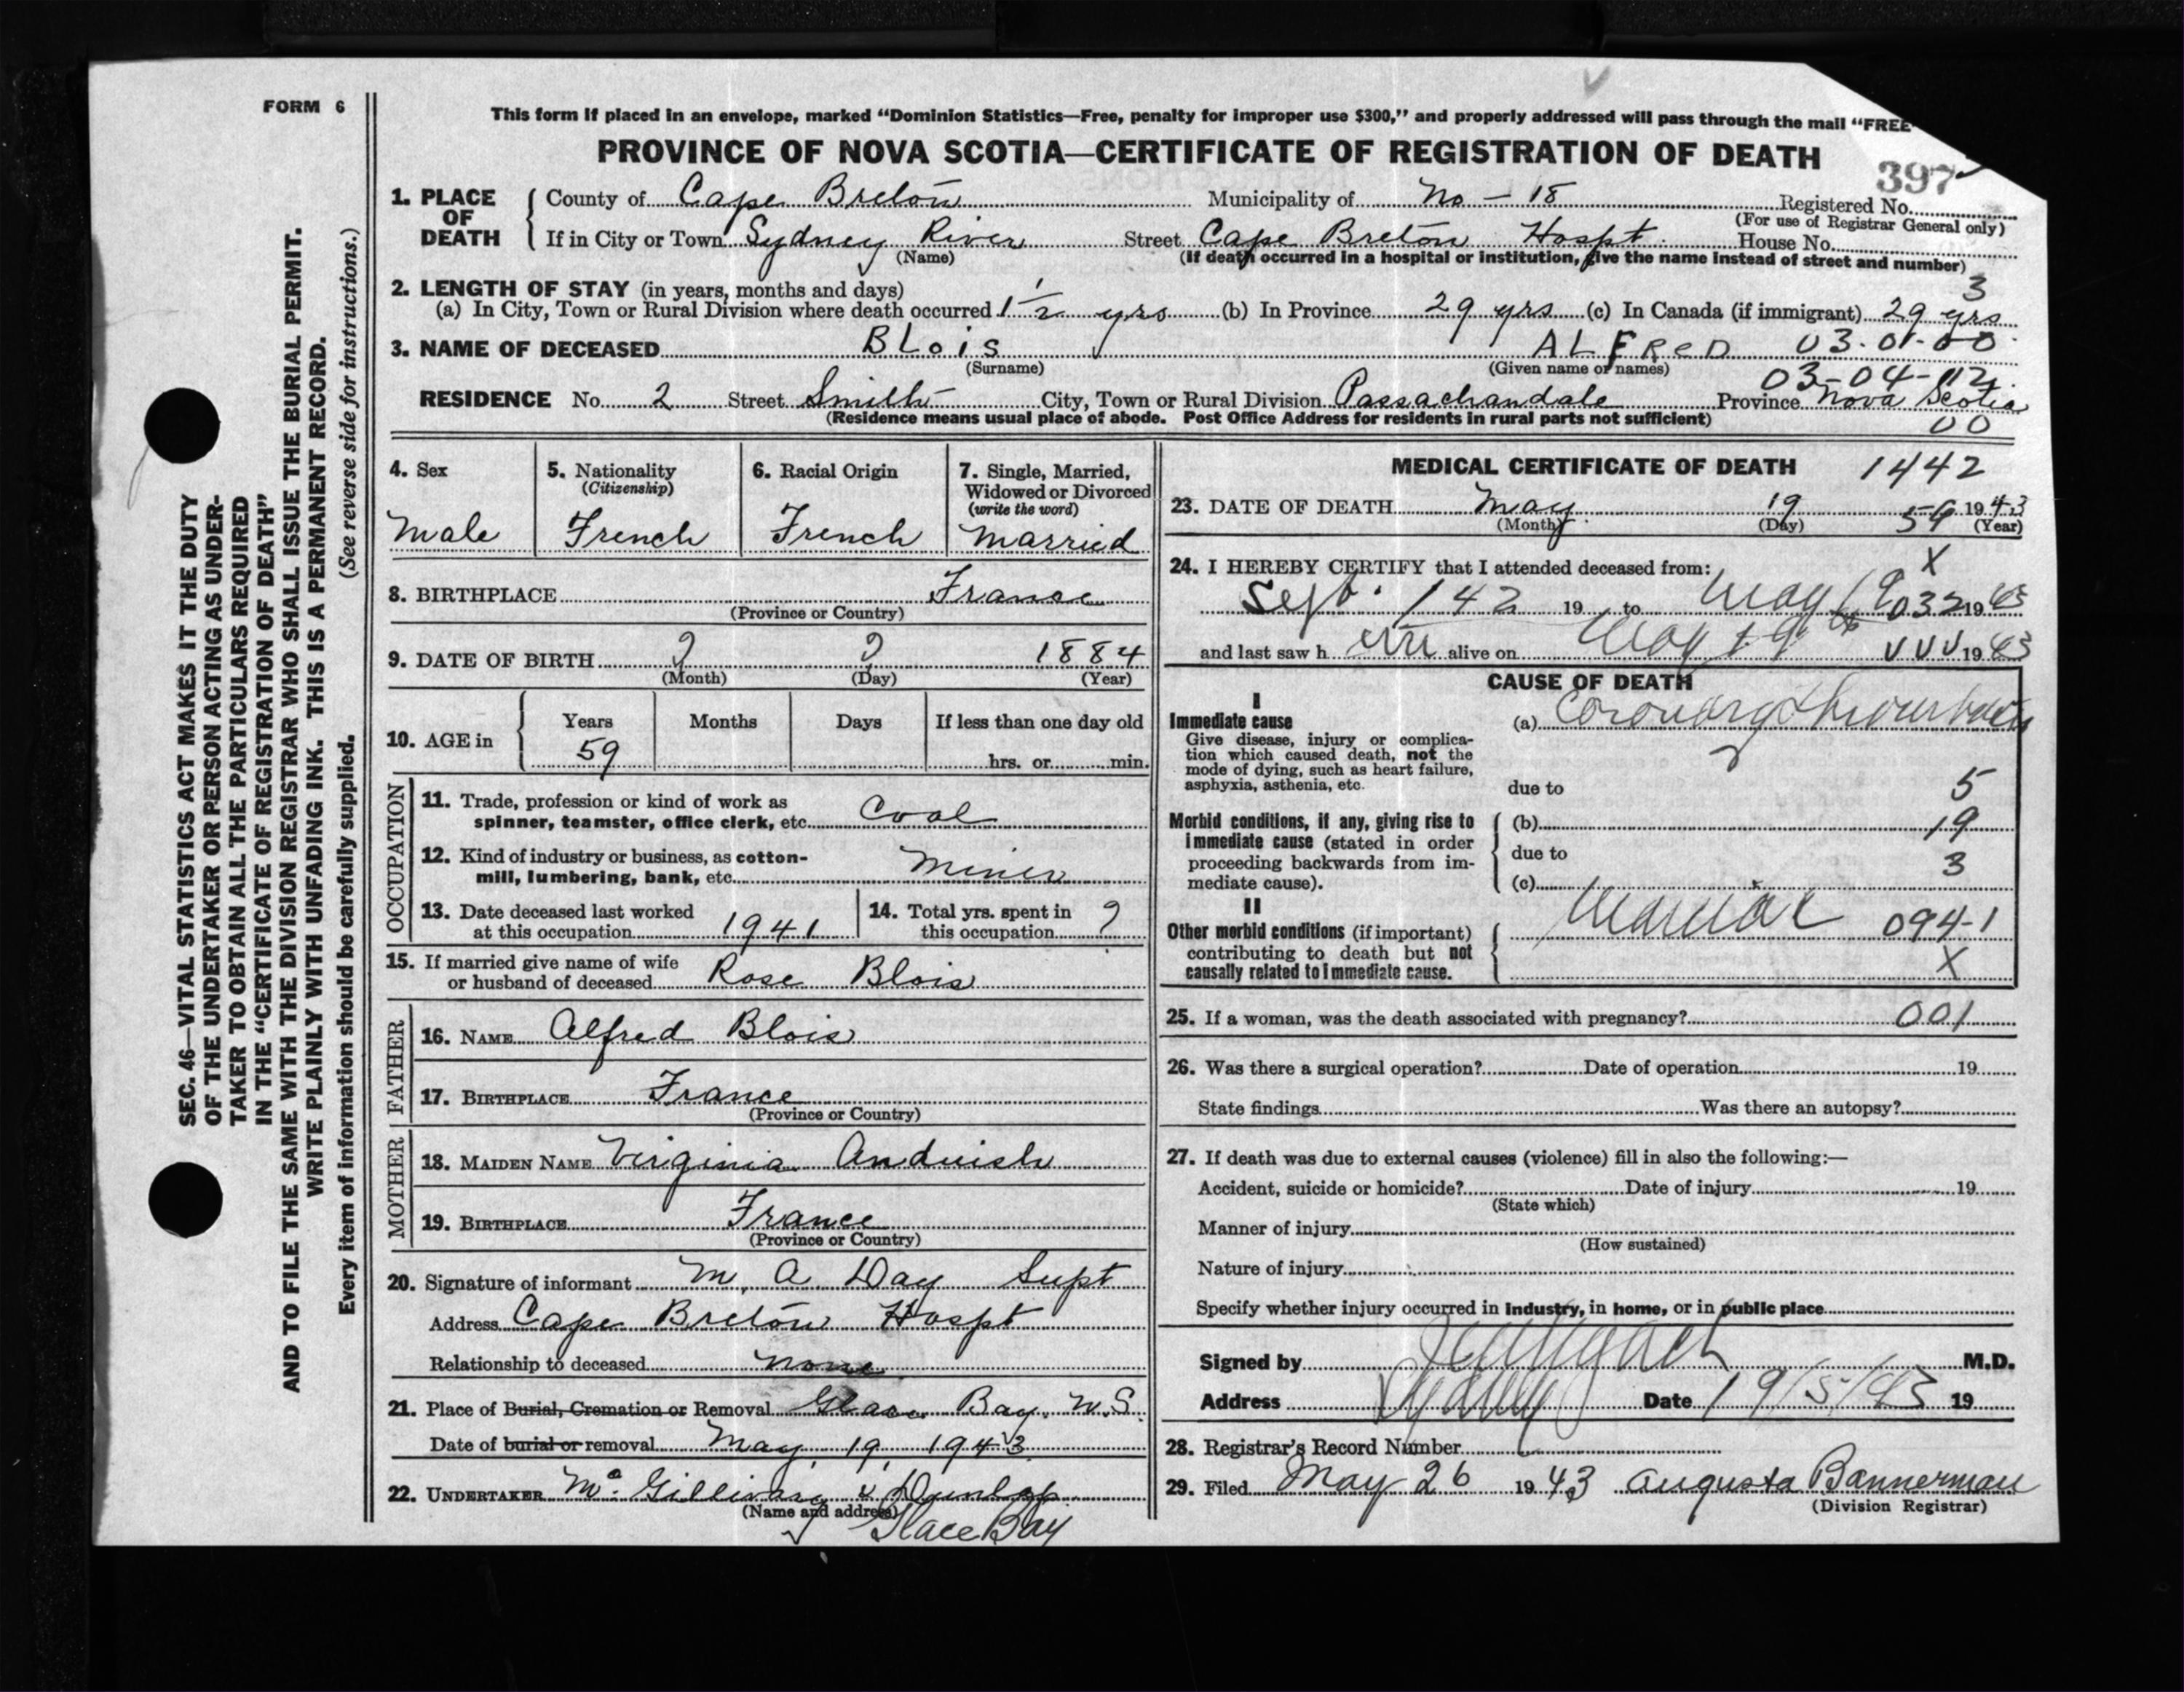 FORM 6
This form if placed in an envelope, marked “Dominion Statistics—Free, penalty for improper use $300,” and properly addressed will pass through the mail “FREE
PROVINCE OF NOVA SCOTIA—CERTIFICATE OF REGISTRATION OF DEATH
397
1. PLACE OF DEATH
County of Cape Breton Municipality of No - 18 Registered No.
(For use of Registrar General only)
If in City or Town Sydney River Street Cape Breton Hospt. House No.
(Name) (If death occurred in a hospital or institution, give the name instead of street and number)
2. LENGTH OF STAY (in years, months and days) 3
(a) In City, Town or Rural Division where death occurred 1 1/2 yrs (b) In Province 29 yrs (c) In Canada (if immigrant) 29 yrs
3. NAME OF DECEASED BLois ALFReD 03-01-00
(Surname) (Given name or names)
03-04-112
RESIDENCE No. 2 Street Smith City, Town or Rural Division Passachandale Province Nova Scotia
(Residence means usual place of abode. Post Office Address for residents in rural parts not sufficient) 00
4. Sex
Male
5. Nationality
(Citizenship)
French
6. Racial Origin
French
7. Single, Married,
Widowed or Divorced
(write the word)
Married
8. BIRTHPLACE France
(Province or Country)
9. DATE OF BIRTH ? ? 1884
(Month) (Day) (Year)
10. AGE in
Years Months Days If less than one day old
59 hrs. or min.
OCCUPATION
11. Trade, profession or kind of work as
spinner, teamster, office clerk, etc. Coal
12. Kind of industry or business, as cotton-
mill, lumbering, bank, etc. Miner
13. Date deceased last worked
at this occupation 1941
14. Total yrs. spent in
this occupation ?
15. If married give name of wife
or husband of deceased Rose Blois
FATHER
16. NAME Alfred Blois
17. BIRTHPLACE France
(Province or Country)
MOTHER
18. MAIDEN NAME Virginia
19. BIRTHPLACE France
(Province or Country)
20. Signature of informant M. A. Day Supt
Address Cape Breton Hospt
Relationship to deceased None
21. Place of Burial, Cremation or Removal Glace Bay. N.S.
Date of burial or removal May 19, 1943
22. UNDERTAKER McGillivary & Dunlop
(Name and address)
Glace Bay
MEDICAL CERTIFICATE OF DEATH 1442
23. DATE OF DEATH May 19 59 1943
(Month) (Day) (Year)
24. I HEREBY CERTIFY that I attended deceased from: X
Sept. 1 42 19 to May 19 032 19 43
and last saw h im alive on May 19th VVV 19 43
CAUSE OF DEATH
I
Immediate cause
Give disease, injury or complica-
tion which caused death, not the
mode of dying, such as heart failure,
asphyxia, asthenia, etc.
(a) Coronary thrombosis
due to 5
Morbid conditions, if any, giving rise to
immediate cause (stated in order
proceeding backwards from im-
mediate cause).
(b) 19
due to
(c) 3
II
Other morbid conditions (if important)
contributing to death but not
causally related to immediate cause.
094-1
X
25. If a woman, was the death associated with pregnancy? 001
26. Was there a surgical operation? Date of operation 19
State findings Was there an autopsy?
27. If death was due to external causes (violence) fill in also the following:—
Accident, suicide or homicide? Date of injury 19
(State which)
Manner of injury
(How sustained)
Nature of injury
Specify whether injury occurred in industry, in home, or in public place
Signed by M.D.
Address Sydney Date 19/5/43 19
28. Registrar's Record Number
29. Filed May 26 1943 Augusta Bannerman
(Division Registrar)
SEC. 46—VITAL STATISTICS ACT MAKES IT THE DUTY
OF THE UNDERTAKER OR PERSON ACTING AS UNDER-
TAKER TO OBTAIN ALL THE PARTICULARS REQUIRED
IN THE “CERTIFICATE OF REGISTRATION OF DEATH”
AND TO FILE THE SAME WITH THE DIVISION REGISTRAR WHO SHALL ISSUE THE BURIAL PERMIT.
WRITE PLAINLY WITH UNFADING INK. THIS IS A PERMANENT RECORD.
Every item of information should be carefully supplied. (See reverse side for instructions.)